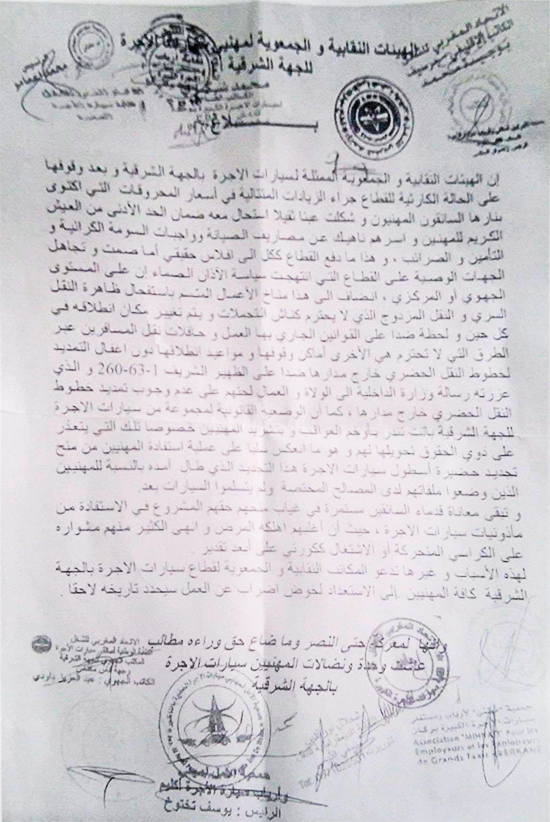 الهيئات النقابية و الجمعوية لمهنيي سيارات الأجرة
للجهة الشرقية
بـــلاغ
إن الهيئات النقابية و الجمعوية الممثلة لسيارات الاجرة بالجهة الشرقية و بعد وقوفها
على الحالة الكارثية للقطاع جراء الزيادات المتتالية في أسعار المحروقات التي اكتوى
بنارها السائقون المهنيون و شكلت عبئا ثقيلا استحال معه ضمان الحد الأدنى من العيش
الكريم للمهنيين و اسرهم ناهيك عن مصاريف الصيانة وواجبات السومة الكرائية و
التأمين و الضرائب ، و هذا ما دفع القطاع ككل الى افلاس حقيقي أما صمت و تجاهل
الجهات الوصية على القطاع التي انتهجت سياسة الآذان الصماء ان على المستوى
الجهوي أو المركزي ، انضاف الى هذا مناخ الأعمال المتسم باستفحال ظاهرة النقل
السري و النقل المزدوج الذي لا يحترم كناش التحملات و يتم تغيير مكان انطلاقه في
كل حين و لحظة ضدا على القوانين الجاري بها العمل و حافلات نقل المسافرين عبر
الطرق التي لا تحترم هي الأخرى أماكن وقوفها و مواعيد انطلاقها دون اغفال التمديد
لخطوط النقل الحضري خارج مدارها ضدا على الظهير الشريف 1-63-260 و الذي
عززته رسالة وزارة الداخلية الى الولاة و العمال لحثهم على عدم وجوب تمديد خطوط
النقل الحضري خارج مدارها ، كما أن الوضعية القانونية لمجموعة من سيارات الاجرة
للجهة الشرقية باتت تنذر بأوخم العواقب و بتشريد المهنيين خصوصا تلك التي يتعذر
على ذوي الحقوق تحويلها لهم و هو ما انعكس سلبا على عملية استفادة المهنيين من منح
تجديد حضيرة أسطول سيارات الاجرة هذا التجديد الذي طال أمده بالنسبة للمهنيين
الذين وضعوا ملفاتهم لدى المصالح المختصة ولم يتسلموا السيارات بعد.
و تبقى معاناة قدماء السائقين مستمرة في غياب منحهم حقهم المشروع في الاستفادة من
مأذونيات سيارات الاجرة ، حيث أن أغلبهم اهلكه المرض و انهى الكثير منهم مشواره
على الكراسي المتحركة أو الاشتغال ككورتي على أبعد تقدير .
لهذه الأسباب و غيرها تدعو المكاتب النقابية و الجمعوية لقطاع سيارات الاجرة بالجهة
الشرقية كافة المهنيين إلى الاستعداد لخوض اضراب عن العمل سيحدد تاريخه لاحقا .
لمعركة حتى النصر وما ضاع حق وراءه مطالب
عاشت وحدة ونضالات المهنيين سيارات الاجرة
بالجهة الشرقية
الاتحاد المغربي للشغل
المكتب الجهوي للجهة الشرقية
الكاتب الجهوي : عبد العزيز داودي
جمعية الأمل لمهنيي
وأرباب سيارة الأجرة إقليم
الرئيس : يوسف تختوخ
Employeurs et les Employeurs
de Grands Taxis BERKANE